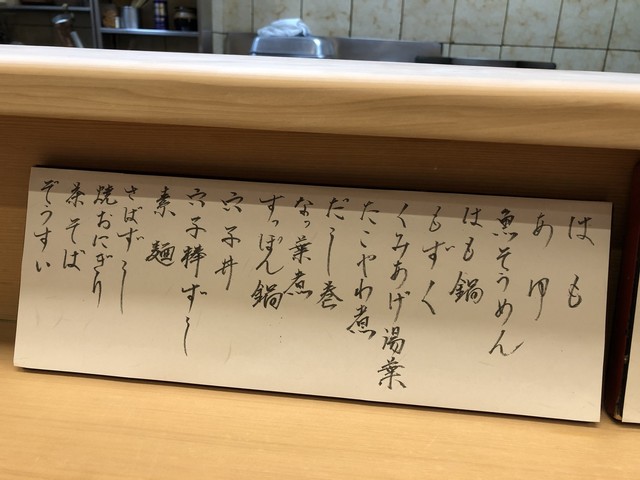 はも
あゆ
魚そうめん
はも鍋
もずく
くみあげ湯葉
たこやわ煮
だし巻
なっ葉煮
すっぽん鍋
穴子丼
穴子棒ずし
素麺
さばずし
焼おにぎり
茶そば
ぞうすい